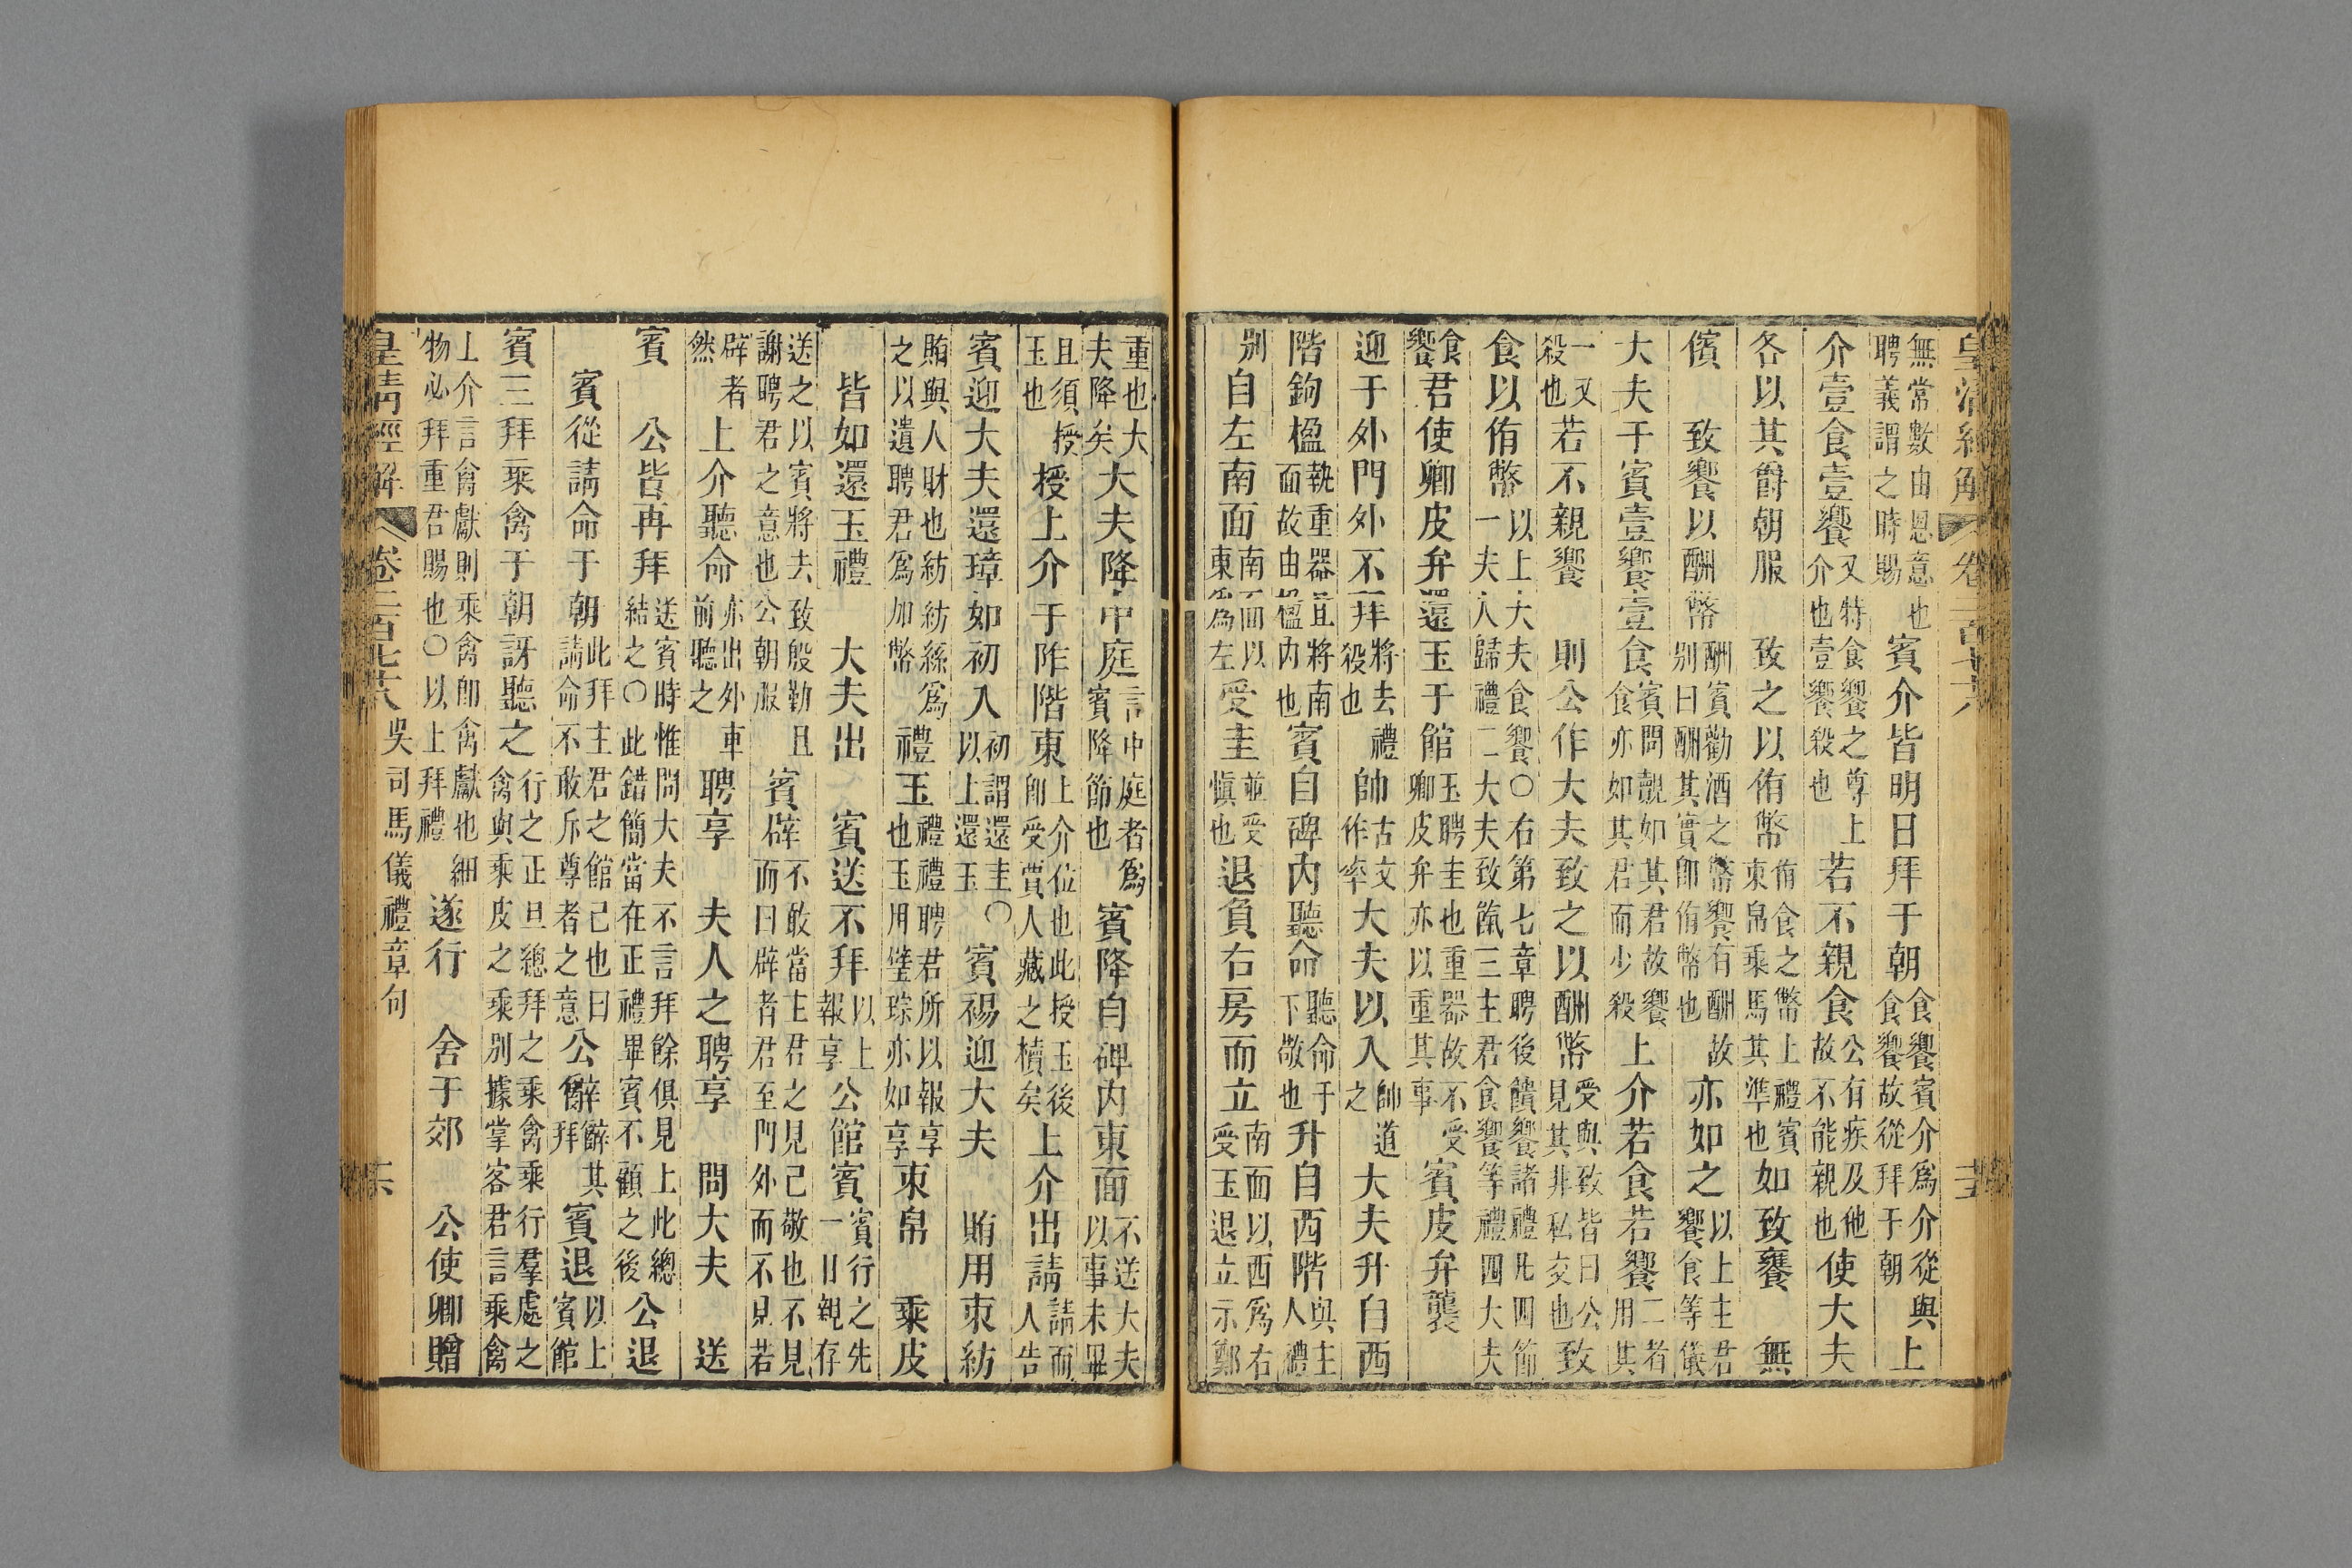 皇清經解 卷二百七十八
無常數由恩意也聘義謂之時賜賓介皆明日拜于朝食饗賓介爲介從與食饗故從拜于朝上
介壹食壹饗又特食饗之尊上介也壹饗殺也若不親食公有疾及他故不能親也使大夫
各以其爵朝服 致之以侑幣侑食之幣上禮賓束帛乘馬其準也如致饔 無
儐 致饗以酬幣酬賓勸酒之幣饗有酬故别曰酬其實卽侑幣也亦如之以上主君饗食等儀
大夫于賓壹饗壹食賓問覿如其君故饗食亦如其君而少殺上介若食若饗二者用其
一又殺也若不親饗 則公作大夫致之以酬幣受與致皆曰公見其非私交也致
食以侑幣以上大夫食饗○右第七章聘後饋饗諸禮凡四節一夫人歸禮二大夫致餼三主君食饗等禮四大夫
食饗君使卿皮弁還玉于館玉聘圭也重器故不受卿皮弁亦以重其事賓皮弁襲
迎于外門外不拜將去禮殺也帥古文作率大夫以入帥道之大夫升自西
階鉤楹執重器且將南面故由楹内也賓自碑内聽命聽命于下敬也升自西階與主人禮
别自左南面南面以東爲左受圭並受慎也退負右房而立南面以西爲右受玉退立示鄭
重也大夫降矣大夫降中庭言中庭者爲賓降節也賓降自碑内東面不送大夫以事未畢
且須授玉也授上介于阼階東上介位也此授玉後卽受賈人藏之櫝矣上介出請請而人告
賓迎大夫還璋如初入初謂還圭○以上還玉賓裼迎大夫 賄用束紡
賄與人財也紡紡絲爲之以遺聘君爲加幣禮玉禮禮聘君所以報享也玉用璧琮亦如享束帛 乘皮
皆如還玉禮 大夫出 賓送不拜以上報享公館賓賓行之先一日親存
送之以賓將去致殷勤且謝聘君之意也公朝服賓辟不敢當主君之見己敬也不見而曰辟者君至門外而不見若
辟者然上介聽命亦出外車前聽之聘享 夫人之聘享 問大夫 送
賓 公皆再拜送賓時惟問大夫不言拜餘俱見上此總結之○此錯簡當在正禮畢賓不顧之後公退
賓從請命于朝此拜主君之館己也曰請命不敢斥尊者之意公辭辭其拜賓退以上賓館
賓三拜乘禽于朝訝聽之行之正旦總拜之乘禽乘行羣處之禽與乘皮之乘别據掌客君言乘禽
上介言禽獻則乘禽卽禽獻也細物必拜重君賜也○以上拜禮遂行 舍于郊 公使卿贈
皇清經解 卷二百七十八 吳司馬儀禮章句